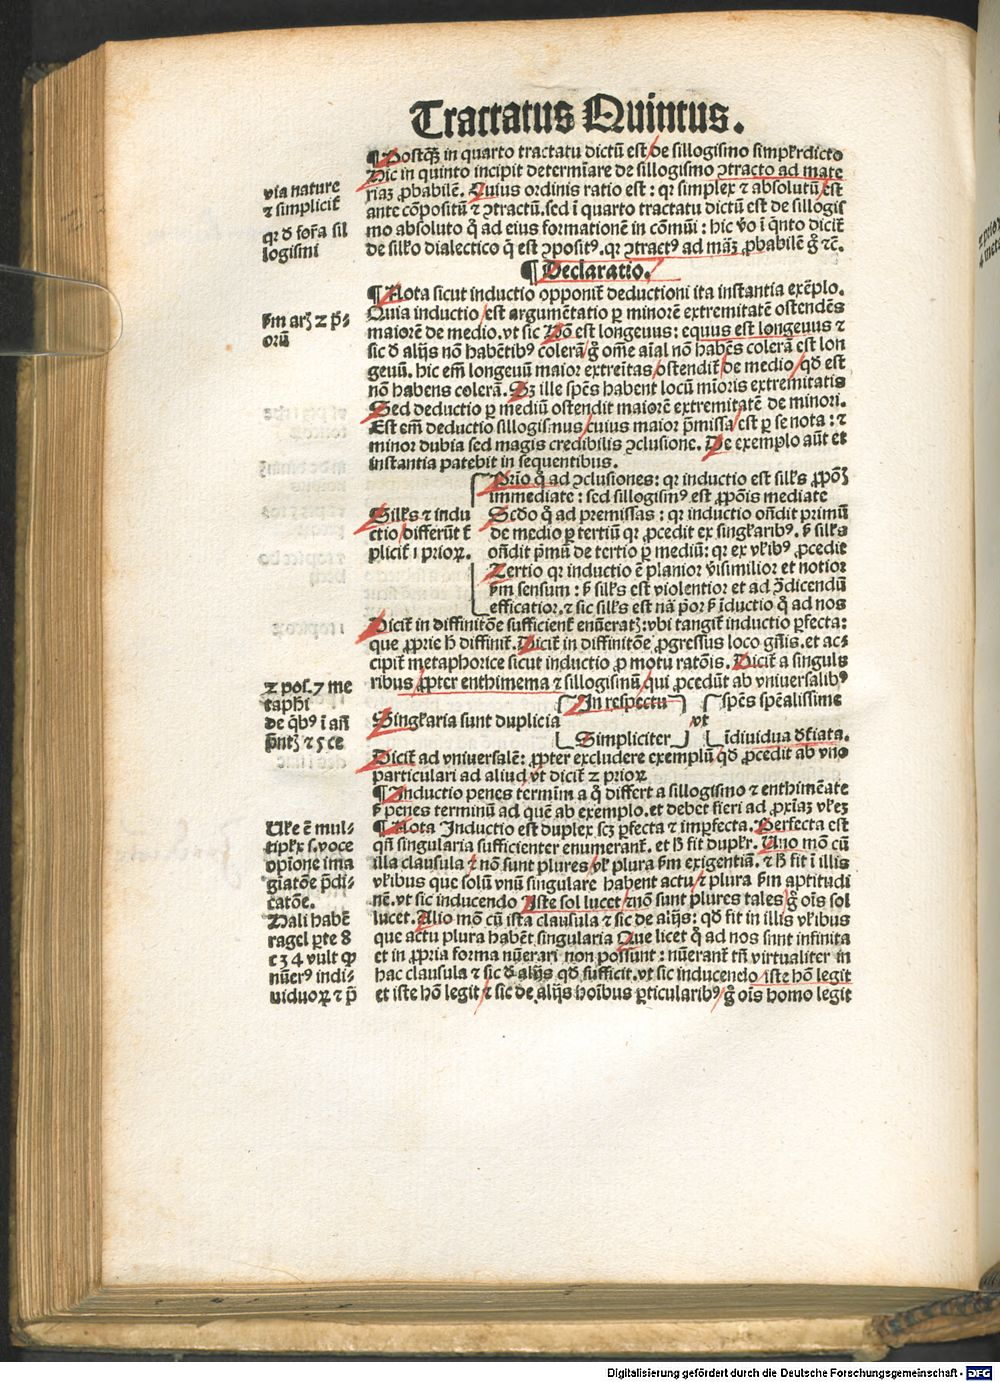 Tractatus Quintus.
¶ Postqȝ in quarto tractatu dictū est de sillogismo simpłr dicto
Hic in quinto incipit determīare de sillogismo ɔtracto ad mate
riaȝ ꝓbabilē. Cuius ordinis ratio est: qꝛ simplex ⁊ absolutū est
ante cōpositū ⁊ ɔtractū. sed ī quarto tractatu dictū est de sillogis
mo absoluto q̄ ad eius formationē in cōmūi: hic v̄o ī q̄nto dicit̄
de silło dialectico q̄ est ɔpositꝰ. qꝛ ɔtractꝰ ad māȝ ꝓbabilē ḡ ⁊c̄.
via nature
⁊ simplicit̄
qꝛ d̄ forā sil
logismi
¶ Declaratio.
¶ Nota sicut inductio opponit̄ deductioni ita instantia exēplo.
Quia inductio est argumētatio ꝑ minorē extremitatē ostendēs
maiorē de medio. vt sic Hō est longeuus: equus est longeuus ⁊
sic d̄ alijs nō habētibꝰ colerā ḡ om̄e aīal nō habēs colerā est lon
geuū. hic em̄ longeuū maior extreītas ostendit̄ de medio qd̄ est
nō habens colerā. Sȝ ille spēs habent locū mīoris extremitatis
Sed deductio ꝑ mediū ostendit maiorē extremitatē de minori.
Est em̄ deductio sillogismus cuius maior p̄missa est ꝑ se nota: ⁊
minor dubia sed magis credibilis ɔclusione. De exemplo aūt et
instantia patebit in sequentibus.
ẜm arȝ 2 p̄-
orū
Silłs ⁊ indu
ctio differūt ł
plicit̄ 1 prioꝝ.
Prīo q̄ ad ɔclusiones: qꝛ inductio est silłs ꝓpōȝ
immediate: sed sillogismꝰ est ꝓpōis mediate
Scd̄o q̄ ad premissas: qꝛ inductio on̄dit primū
de medio ꝑ tertiū qꝛ ꝓcedit ex singłaribꝰ. ẜ silłs
on̄dit p̄mū de tertio ꝑ mediū: qꝛ ex vłibꝰ ꝓcedit
Tertio qꝛ inductio ē planior v̄isimilior et notior
ẜm sensum: ẜ silłs est violentior et ad ɔ̄dicendū
efficatior. ⁊ sic silłs est nā p̄or ẜ īductio q̄ ad nos
Dicit̄ in diffinitōe sufficient̄ enūeratȝ: vbi tangit̄ inductio ꝑfecta:
que ꝓprie h̄ diffinit̄. Dicit̄ in diffinitōe ꝓgressus loco gn̄is. et ac-
cipit̄ metaphorice sicut inductio ꝓ motu ratōis. Dicit̄ a singula
ribus ꝓpter enthimema ⁊ sillogismū qui ꝓcedūt ab vniuersalibꝰ
2 pos. 7 me
taph̄i
de q̄bꝰ ī an̄
p̄ntȝ ⁊ 5 ce
Singłaria sunt duplicia
In respectu
Simpliciter
vt
spēs spēalissime
īdiuidua dr̄iata.
Dicit̄ ad vniuersalē: ꝓpter excludere exemplū qd̄ ꝓcedit ab vno
particulari ad aliud vt dicit̄ 2 prioꝝ
¶ Inductio penes termīm a q̄ differt a sillogismo ⁊ enthimēate
ẜ penes terminū ad quē ab exemplo. et debet fieri ad ꝓxīaȝ vłeȝ
¶ Nota Inductio est duplex scȝ ꝑfecta ⁊ imꝑfecta. Perfecta est
qn̄ singularia sufficienter enumerant̄. et h̄ fit dupłr. Uno mō cū
illa clausula ⁊ nō sunt plures vł plura ẜm exigentiā. ⁊ h̄ fit ī illis
vłibus que solū vnū singulare habent actu ⁊ plura ẜm aptitudi
nē. vt sic inducendo Iste sol lucet ⁊ nō sunt plures tales ḡ oīs sol
lucet. Alio mō cū ista clausula ⁊ sic de alijs: qd̄ fit in illis vłibus
que actu plura habēt singularia Que licet q̄ ad nos sint infinita
et in ꝓpria forma nūerari non possunt: nūerant̄ tn̄ virtualiter in
hac clausula ⁊ sic d̄ alijs qd̄ sufficit. vt sic inducendo iste hō legit
et iste hō legit ⁊ sic de alijs hoībus ꝑticularibꝰ ḡ oīs homo legit
Ułe ē mul-
tipłx s. voce
opīone ima
gīatōe p̄di-
catōe.
Hali habē
ragel ꝑte 8
c 3 4 vult ꝙ
nūerꝰ indi-
uiduoꝝ ⁊ p̄
Digitalisierung gefördert durch die Deutsche Forschungsgemeinschaft - DFG